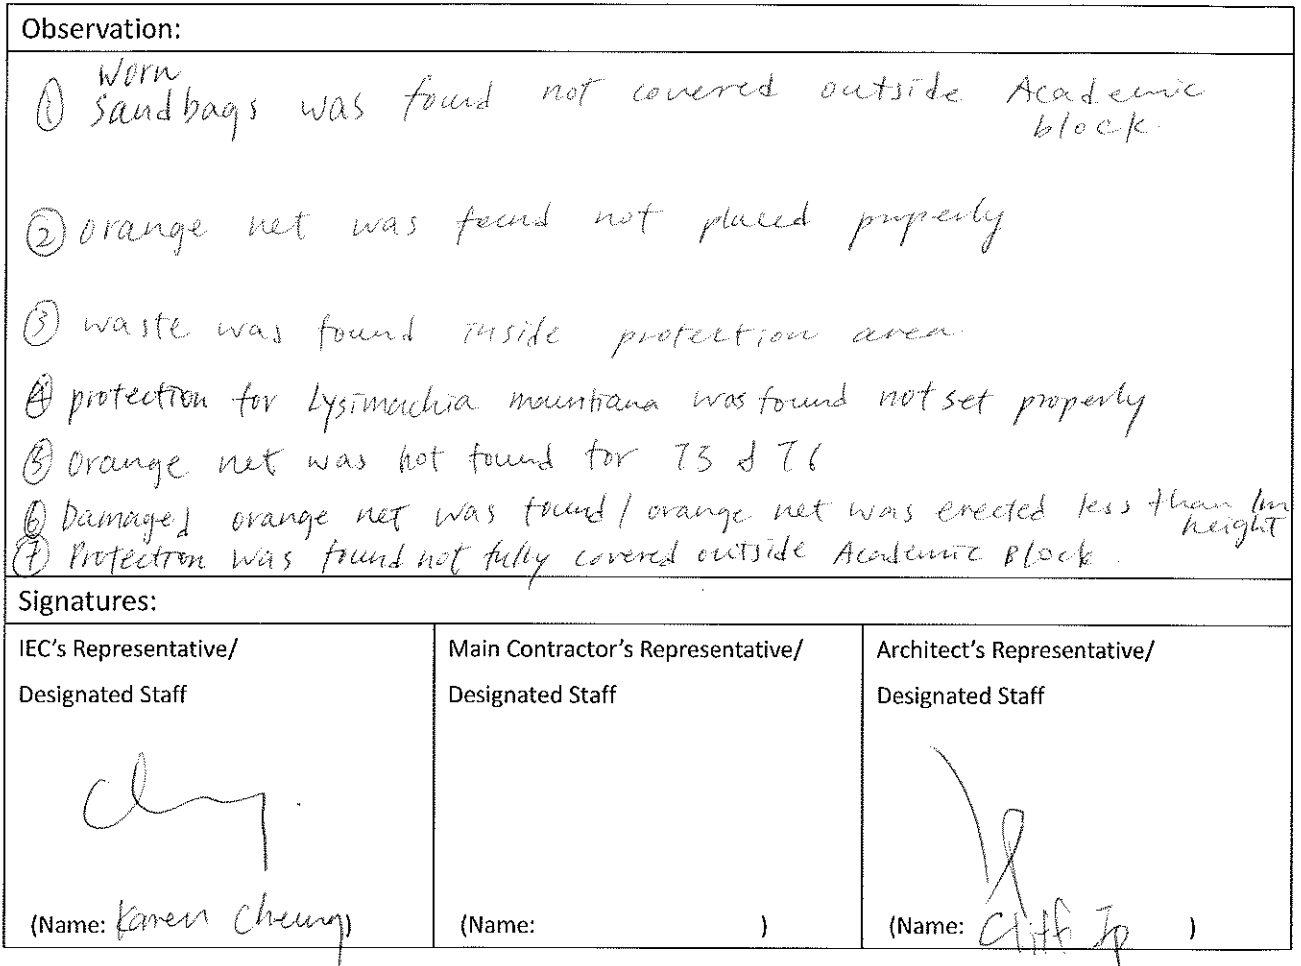 Observation:
① Worn Sandbags was found not covered outside Academic
block.
② orange net was found not placed properly
③ waste was found inside protection area.
④ protection for Lysimachia mauritiana was found not set properly
⑤ orange net was not found for T5 & T6
⑥ Damaged orange net was found / orange net was erected less than 1m
height
⑦ Protection was found not fully covered outside Academic Block.
Signatures:
IEC's Representative/
Designated Staff
(Name: Karen Cheung)
Main Contractor's Representative/
Designated Staff
(Name: )
Architect's Representative/
Designated Staff
(Name: Cliff Ip )